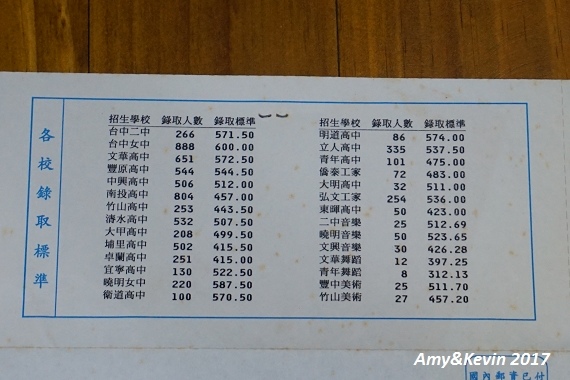 各校錄取標準
招生學校 錄取人數 錄取標準
台中二中 266 571.50
台中女中 888 600.00
文華高中 651 572.50
豐原高中 544 544.50
中興高中 506 512.00
南投高中 804 457.00
竹山高中 253 443.50
清水高中 532 507.50
大甲高中 208 499.50
埔里高中 502 415.50
卓蘭高中 251 415.00
宜寧高中 130 522.50
曉明女中 220 587.50
衛道高中 100 570.50
招生學校 錄取人數 錄取標準
明道高中 86 574.00
立人高中 335 537.50
青年高中 101 475.00
僑泰工家 72 483.00
大明高中 32 511.00
弘文工家 254 536.00
東暉高中 50 423.00
二中音樂 25 512.69
曉明音樂 50 523.65
文興音樂 30 426.28
文華舞蹈 12 397.25
青年舞蹈 8 312.13
豐中美術 25 511.70
竹山美術 27 457.20
Amy&Kevin 2017
國內郵資已付